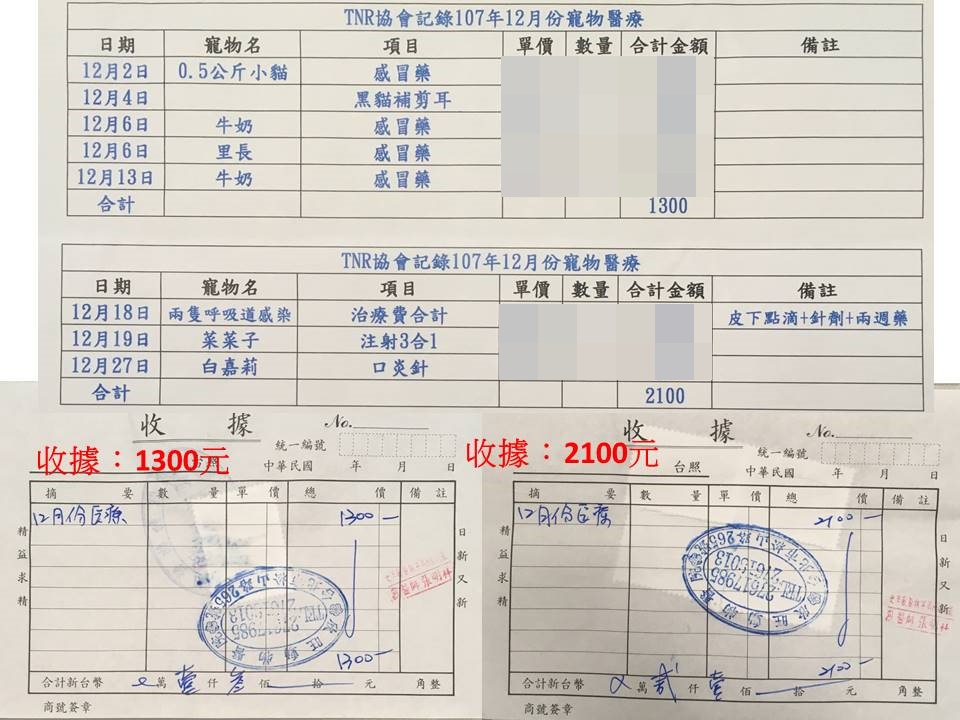 TNR協會記錄107年12月份寵物醫療
日期 寵物名 項目 單價 數量 合計金額 備註
12月2日 0.5公斤小貓 感冒藥
12月4日 黑貓補剪耳
12月6日 牛奶 感冒藥
12月6日 里長 感冒藥
12月13日 牛奶 感冒藥
合計 1300
TNR協會記錄107年12月份寵物醫療
日期 寵物名 項目 單價 數量 合計金額 備註
12月18日 兩隻呼吸道感染 治療費合計 皮下點滴+針劑+兩週藥
12月19日 菜菜子 注射3合1
12月27日 白嘉莉 口炎針
合計 2100
收據 No.
統一編號
收據:1300元
台照 中華民國 年 月 日
摘要 數量 單價 總價 備註
12月份醫療 1300
精益求精
日新又新
TEL:27617985
27615013
1300
合計新台幣 萬壹仟參佰 拾 元 角整
商號簽章
收據 No.
統一編號
收據:2100元
台照 中華民國 年 月 日
摘要 數量 單價 總價 備註
12月份醫療 2100
精益求精
日新又新
TEL:27617985
27615013
2100
合計新台幣 萬貳仟壹佰 拾 元 角整
商號簽章